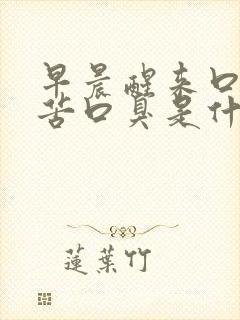 早晨醒来口
苦口臭是什
蓮葉竹